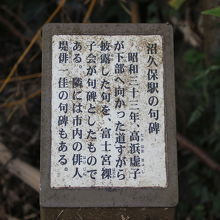 沼久保駅の句碑
昭和三十三年、高浜虚子
が下部へ向かった道すがら
披露した句を、富士宮裸
子会が句碑としたもので
ある。隣には市内の俳人
堤俳一佳の句碑もある。